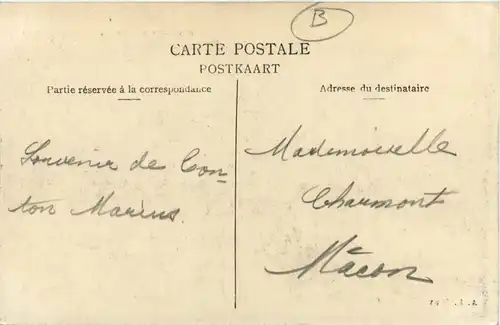 B
CARTE POSTALE
POSTKAART
Partie réservée à la correspondance
Adresse du destinataire
Souvenir de Con-
ton Marius
Mademoiselle
Charmont
Mâcon